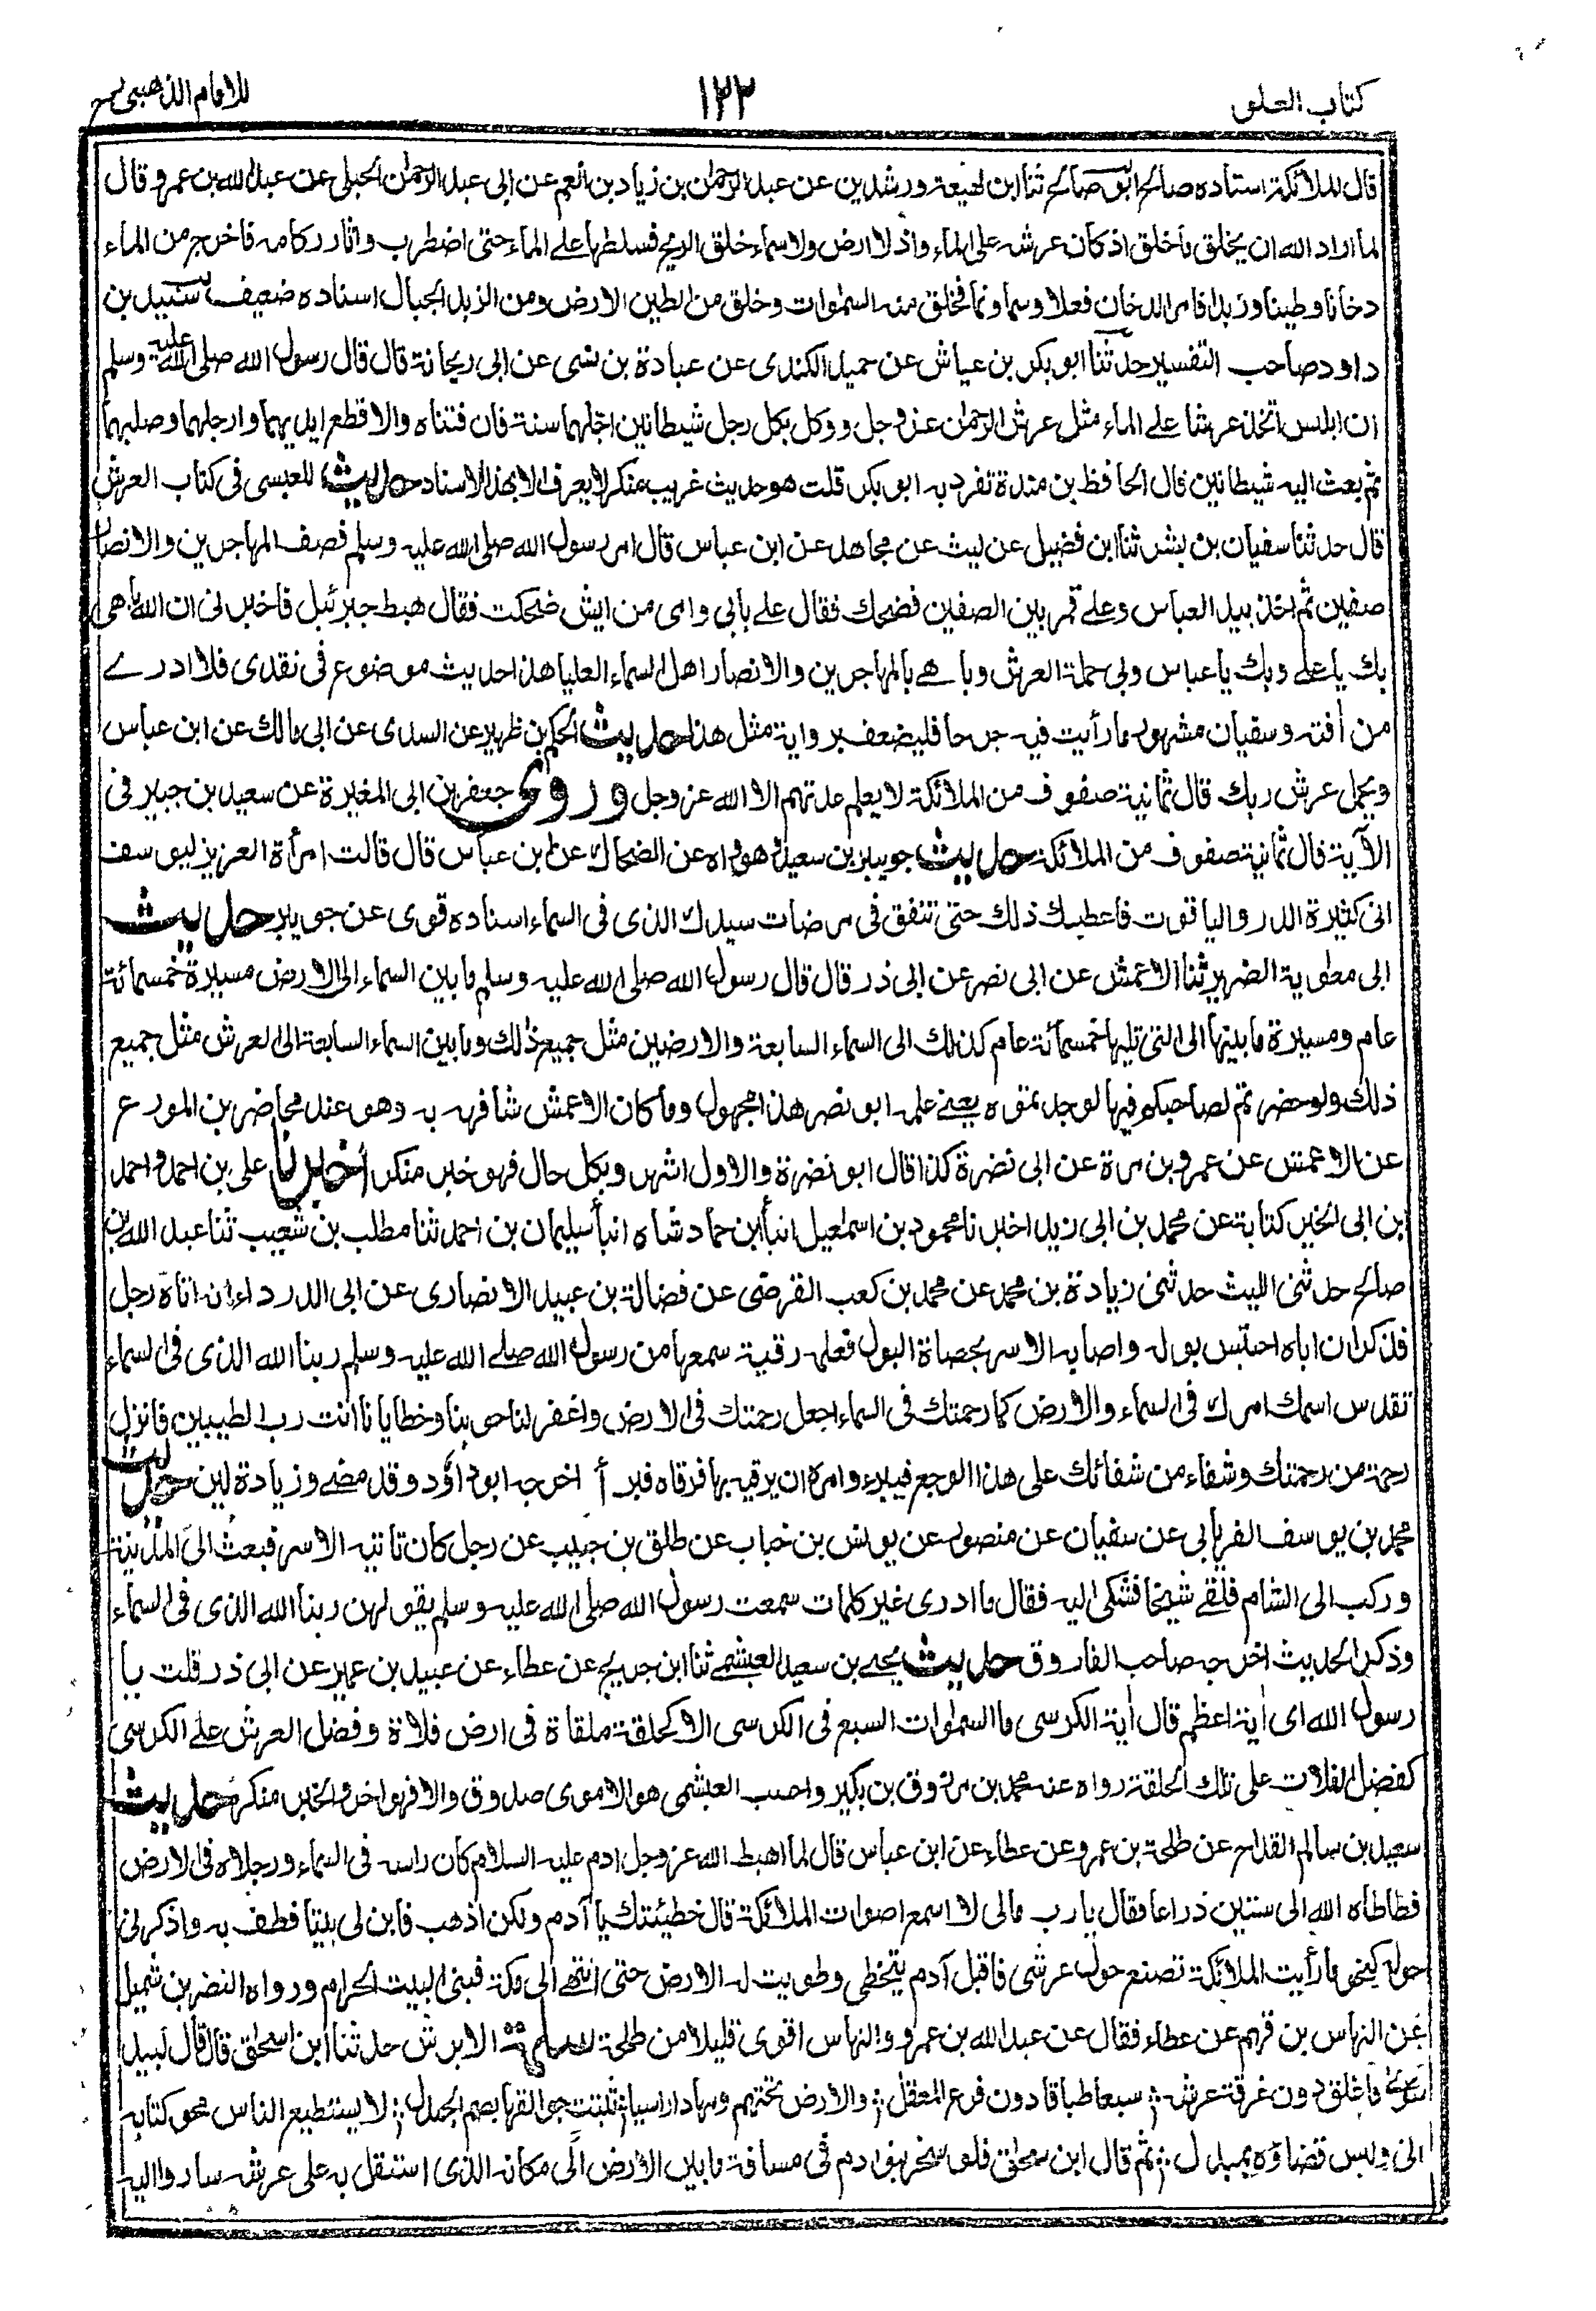 كتاب العلو
١٢٣
للامام الذهبى رح
قال للملائكة استاده صالح ابو صالح ثنا ابن لهيعة ورشدين عن عبد الرحمن بن زياد بن انعم عن ابى عبد الرحمن الحبلى عن عبد الله بن عمرو قال
لما اراد الله ان يخلق ما خلق اذ كان عرشه على الماء واذ لا ارض ولا سماء خلق الريح فسلطها على الماء حتى اضطرب واثار ركامه فاخرج من الماء
دخانا وطينا وزبدا فامر الدخان فعلا وسما ونما فخلق منه السموات وخلق من الطين الارض ومن الزبد الجبال اسناده ضعيف سنيد بن
داود صاحب التفسير حدثنا ابو بكر بن عياش عن حميد الكندى عن عبادة بن نسى عن ابى ريحانة قال قال رسول الله صلى الله عليه وسلم
ان ابليس اتخذ عرشا على الماء مثل عرش الرحمن عز وجل ووكل بكل رجل شيطانين اجلهما سنة فان فتناه والا قطع ايديهما وارجلهما وصلبهما
ثم بعث اليه شيطانين قال الحافظ بن مندة تفرد به ابو بكر قلت هو حديث غريب منكر لا يعرف الا بهذا الاسناد حديث للعبسى فى كتاب العرش
قال حدثنا سفيان بن بشر ثنا ابن فضيل عن ليث عن مجاهد عن ابن عباس قال امر رسول الله صلى الله عليه وسلم فصف المهاجرين والانصار
صفين ثم اخذ بيد العباس وعلى فمر بين الصفين فضحك فقال على بابى وامى من ايش ضحكت فقال هبط جبرئيل فاخبرنى ان الله باهى
بك يا على وبك يا عباس وبى حملة العرش وباهى بالمهاجرين والانصار اهل السماء العليا هذا حديث موضوع فى نقدى فلا ادرے
من أفته وسفيان مشهور ما رأيت فيه جرحا فليضعف برواية مثل هذا حديث الحكم بن ظهير عن السدى عن ابى مالك عن ابن عباس
ويحمل عرش ربك قال ثمانية صفوف من الملائكة لا يعلم عدتهم الا الله عز وجل وروى جعفر بن ابى المغيرة عن سعيد بن جبير فى
الآية قال ثمانية صفوف من الملائكة حديث جويبر بن سعيد وهو واه عن الضحاك عن ابن عباس قال قالت امرأة العزيز ليوسف
انى كثيرة الدر والياقوت فاعطيك ذلك حتى تنفق فى مرضات سيدك الذى فى السماء اسناده قوى عن جويبر حديث
ابى معوية الضرير ثنا الاعمش عن ابى نصر عن ابى ذر قال قال رسول الله صلى الله عليه وسلم ما بين السماء الى الارض مسيرة خمسمائة
عام ومسيرة ما بينها الى التى تليها خمسمائة عام كذلك الى السماء السابعة والارضين مثل جميع ذلك وما بين السماء السابعة الى العرش مثل جميع
ذلك ولو حضرتم لصاحبكم فيها لوجدتموه يعنے علمه ابو نصر هذا مجهول وما كان الاعمش شافهه به وهو عند محاضر بن المورع
عن الاعمش عن عمرو بن مرة عن ابى نضرة كذا قال ابو نضرة والاول اشهر وبكل حال فهو خبر منكر أخبرنا على بن احمد واحمد
بن ابى الخير كتابة عن محمد بن ابى زيد اخبرنا محمود بن اسمعيل انبأ ابن حماد شاه انبأ سليمان بن احمد ثنا مطلب بن شعيب ثنا عبد الله بن
صالح حدثنى الليث حدثنى زيادة بن محمد عن محمد بن كعب القرضى عن فضالة بن عبيد الانصارى عن ابى الدرداء ان اتاه رجل
فذكر ان اباه احتبس بوله واصابه الاسر بحصاة البول فعلمه رقية سمعها من رسول الله صلے الله عليه وسلم ربنا الله الذى فى السماء
تقدس اسمك امرك فى السماء والارض كما رحمتك فى السماء اجعل رحمتك فى الارض واغفر لنا حوبنا وخطايانا أنت رب الطيبين فانزل
رحمة من رحمتك وشفاء من شفائك على هذا الوجع فيبرء وامره ان يرقيه بها فرقاه فبرأ اخرجه ابو داؤد وقد مضے وزيادة لين حديث
محمد بن يوسف الفريابى عن سفيان عن منصور عن يونس بن خباب عن طلق بن حبيب عن رجل كان تاتيه الاسر فبعث الى المدينة
وركب الى الشام فلقے شيخا فشكى اليه فقال ما ادرى غير كلمات سمعت رسول الله صلى الله عليه وسلم يقولهن ربنا الله الذى فى السماء
وذكر الحديث اخرجه صاحب الفاروق حديث يحيے بن سعيد العبشمے ثنا ابن جريج عن عطاء عن عبيد بن عمير عن ابى ذر قلت يا
رسول الله اى أية اعظم قال أية الكرسى ما السموات السبع فى الكرسى الا كحلقة ملقاة فى ارض فلاة وفضل العرش على الكرسى
كفضل الفلات على تلك الحلقة رواه عنه محمد بن مرزوق بن بكير واحسب العبشمى هو الاموى صدوق والا فهو اخر والخبر منكر حديث
سعيد بن سالم القداح عن طلحة بن عمرو عن عطاء عن ابن عباس قال لما اهبط الله عز وجل ادم عليه السلام كان راسه فى السماء ورجلاه فى الارض
فطاطاه الله الى ستين ذراعا فقال يا رب مالى لا اسمع اصوات الملائكة قال خطيئتك يا آدم ولكن اذهب فابن لى بيتا فطف به واذكرنى
حوله كنحو ما رأيت الملائكة تصنع حول عرشى فاقبل آدم يتخطى وطويت له الارض حتى انتهے الى مكة فبنى البيت الحرام ورواه النضر بن شميل
عن النهاس بن قهم عن عطاء فقال عن عبد الله بن عمرو والنهاس اقوى قليلا من طلحة سلمة الابرش حدثنا ابن اسحق قال قال لبيد
سوى فاغلق دون غرفة عرشه ؛ سبعا طباقا دون فرع المعقل ؛ والارض تحتهم مهادا راسيا ؛ ثبتت جوانبها بصم الجندل ؛ لا يستطيع الناس محو كتابه
انى وليس قضاؤه بمبدل ؛ ثم قال ابن سحق فلو سخر بنو ادم فى مسافة ما بين الأرض الى مكانه الذى استقل به على عرشه ساروا اليه